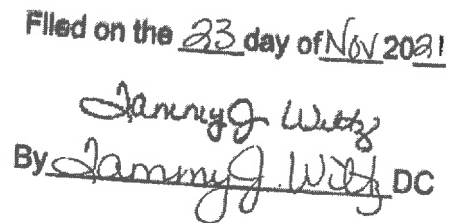 Filed on the 23 day of Nov 2021
Tammy J Wiltz
By Tammy J. Wiltz DC